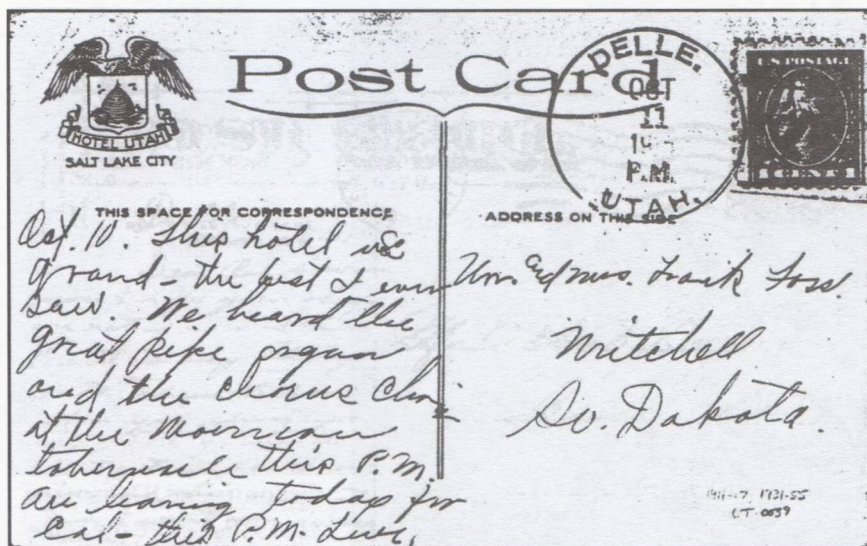 Post Card
DELLE.
OCT
11
19
P.M.
UTAH.
U.S. POSTAGE
1 CENT 1
HOTEL UTAH
SALT LAKE CITY
THIS SPACE FOR CORRESPONDENCE
Oct. 10. This hotel is
grand - the best I ever
saw. We heard the
great pipe organ
and the chorus choir
at the Mormon
tabernacle this P.M.
are leaving today for
Cal - this P.M.
ADDRESS ON THIS SIDE
Mr. and Mrs. Frank
Mitchell
So. Dakota.
1911-17, 1931-55
LT-0039